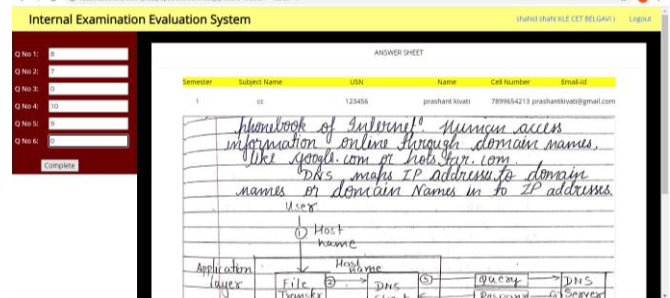 Internal Examination Evaluation System
shahid shahi KLE CET BELGAVI )
Logout
Q No 1: 8
Q No 2: 7
Q No 3: 0
Q No 4: 10
Q No 5: 9
Q No 6: 0
Complete
ANSWER SHEET
Semester Subject Name USN Name Cell Number Email-id
1 cc 123456 prashant kivati 7899654213 prashantkivati@gmail.com
phonebook of Internet". Human access
information online through domain names,
like google.com or hotstar.com.
DNS maps IP addresses to domain
names or domain Names in to IP addresses.
User
① Host
name
Application
layer
Host
name
File
Transfer
②
DNS
③
Query
DNS
Server